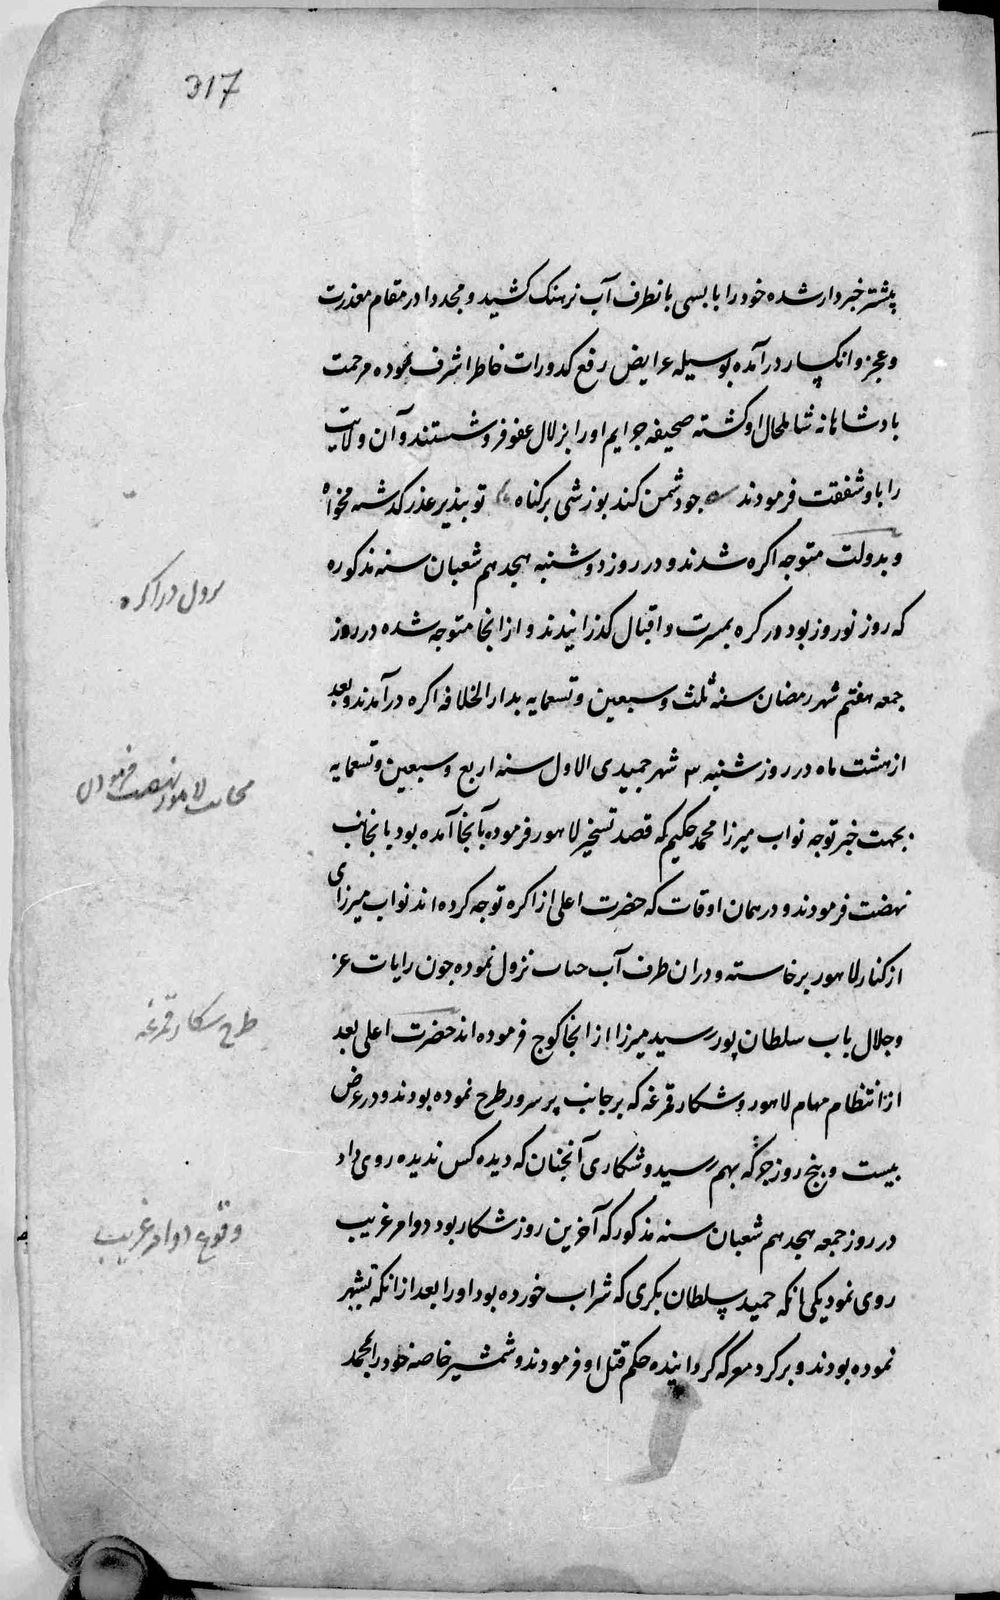 317
پیشتر خبردار شده خود را با بسی بانطرف آب نرهنک کشید و مجددا در مقام معذرت
و عجز و انکسار درآمده بوسیله عرایض رفع کدورات خاطر اشرف نموده مرحمت
بادشاهانه شامل حال او کشته صحیفه جرایم او را بزلال عفو فرو شستند و آن ولایت
را باو شفقت فرمودند جو دشمن کند بوزشی بر کناه تو بپذیر عذر کذشته مخواه
و بدولت متوجه اکره شدند و در روز دوشنبه هجدهم شعبان سنه مذکوره
که روز نوروز بود در کره بمسرت و اقبال کذرانیدند و از انجا متوجه شده در روز
جمعه هفتم شهر رمضان سنه ثلث و سبعین و تسعمایه بدار الخلافه اکره درآمدند و بعد
از هشت ماه در روز شنبه ۳ شهر جمیدی الاول سنه اربع و سبعین و تسعمایه
بجهت خبر توجه نواب میرزا محمد حکیم که قصد تسخیر لاهور فرموده بآنجا آمده بود بانجانب
نهضت فرمودند و در همان اوقات که حضرت اعلی از اکره توجه کرده اند نواب میرزای
از کنار لاهور برخاسته و در ان طرف آب نزول نموده جون رایات عز
و جلال باب سلطان پور رسید میرزا از انجا کوج فرموده اند حضرت اعلی بعد
از انتظام مهام لاهور و شکار قمرغه که بر جانب پرسرور طرح نموده بودند و در عرض
بیست و پنج روز جرکه بهم رسید و شکاری آنجنان که دیده کس ندیده روی داد
در روز جمعه هجدهم شعبان سنه مذکور که آخرین روز شکار بود دو امر غریب
روی نمود یکی انکه حمید سلطان بکری که شراب خورده بود او را بعد از انکه تشهیر
نموده بودند و بر کرد معرکه کردانیده حکم قتل او فرمودند و شمشیر خاصه خود را بمحمد
نزول در اکره
بجانب لاهور نهضت فرمودن
طرح شکار قمرغه
وقوع دو امر غریب